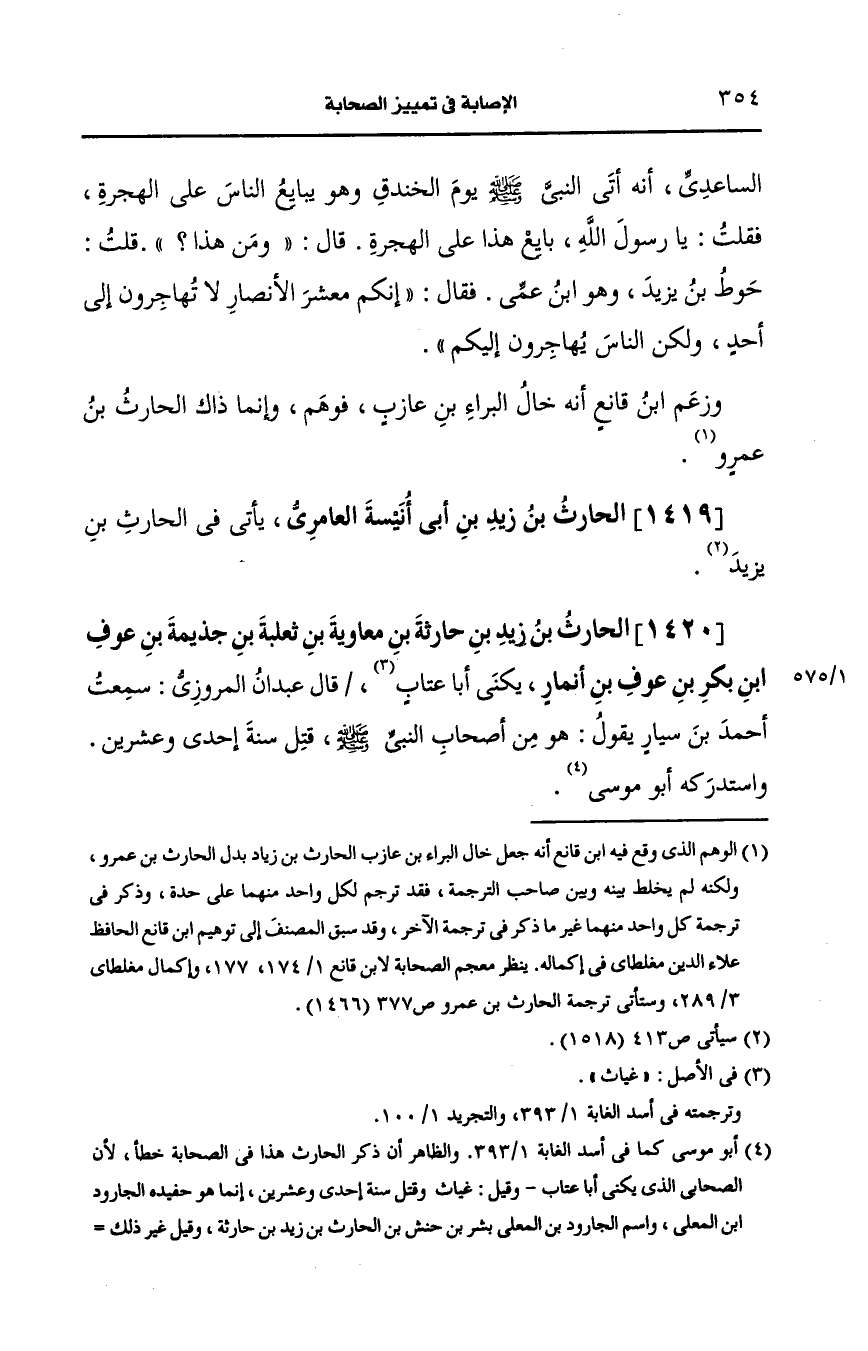 ٣٥٤
الإصابة فى تمييز الصحابة
الساعدِىِّ ، أنه أتَى النبىَّ ﷺ يومَ الخندقِ وهو يبايعُ الناسَ على الهجرةِ ،
فقلتُ : يا رسولَ اللَّهِ ، بايِعْ هذا على الهجرةِ . قال : « ومَن هذا ؟ » .قلتُ :
حَوطُ بنُ يزيدَ ، وهو ابنُ عمِّى . فقال : « إنكم معشرَ الأنصارِ لا تُهاجِرون إلى
أحدٍ ، ولكن الناسَ يُهاجِرون إليكم » .
وزعَم ابنُ قانعٍ أنه خالُ البراءِ بنِ عازبٍ ، فوهَم ، وإنما ذاك الحارثُ بنُ
عمرٍو(١) .
[١٤١٩] الحارثُ بنُ زيدِ بنِ أبى أُنَيْسةَ العامرِىُّ ، يأتى فى الحارثِ بنِ
يزيدَ(٢) .
[١٤٢٠] الحارثُ بنُ زيدِ بنِ حارثةَ بنِ معاويةَ بنِ ثعلبةَ بنِ جذيمةَ بنِ عوفِ
ابنِ بكرِ بنِ عوفِ بنِ أنمارٍ ، يكنَى أبا عتابٍ(٣) ، / قال عبدانُ المروزِىُّ : سمِعتُ
٥٧٥/١
أحمدَ بنَ سيارٍ يقولُ : هو مِن أصحابِ النبىِّ ﷺ ، قتِل سنةَ إحدى وعشرين .
واستدرَكه أبو موسى(٤) .
(١) الوهم الذى وقع فيه ابن قانع أنه جعل خال البراء بن عازب الحارث بن زياد بدل الحارث بن عمرو ،
ولكنه لم يخلط بينه وبين صاحب الترجمة ، فقد ترجم لكل واحد منهما على حدة ، وذكر فى
ترجمة كل واحد منهما غير ما ذكر فى ترجمة الآخر ، وقد سبق المصنفَ إلى توهيم ابن قانع الحافظ
علاء الدين مغلطاى فى إكماله. ينظر معجم الصحابة لابن قانع ١/ ١٧٤، ١٧٧، وإكمال مغلطاى
٣/ ٢٨٩، وستأتى ترجمة الحارث بن عمرو ص٣٧٧ (١٤٦٦) .
(٢) سيأتى ص٤١٣ (١٥١٨) .
(٣) فى الأصل : « غياث » .
وترجمته فى أسد الغابة ١/ ٣٩٣، والتجريد ١/ ١٠٠.
(٤) أبو موسى كما فى أسد الغابة ٣٩٣/١. والظاهر أن ذكر الحارث هذا فى الصحابة خطأ ، لأن
الصحابى الذى يكنى أبا عتاب – وقيل : غياث وقتل سنة إحدى وعشرين ، إنما هو حفيده الجارود
ابن المعلى ، واسم الجارود بن المعلى بشر بن حنش بن الحارث بن زيد بن حارثة ، وقيل غير ذلك =